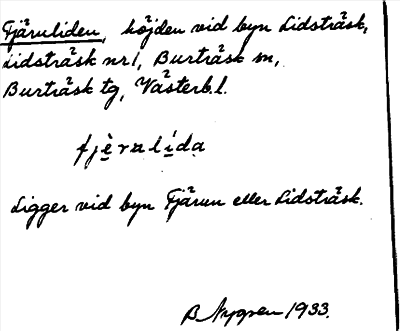 Fjäruliden, höjden vid byn Lidsträsk,
Lidsträsk nr 1, Burträsk sn,
Burträsk tg, Västerb. l.
fjèralída
Ligger vid byn Fjärun eller Lidsträsk.
B. Nygren 1933.